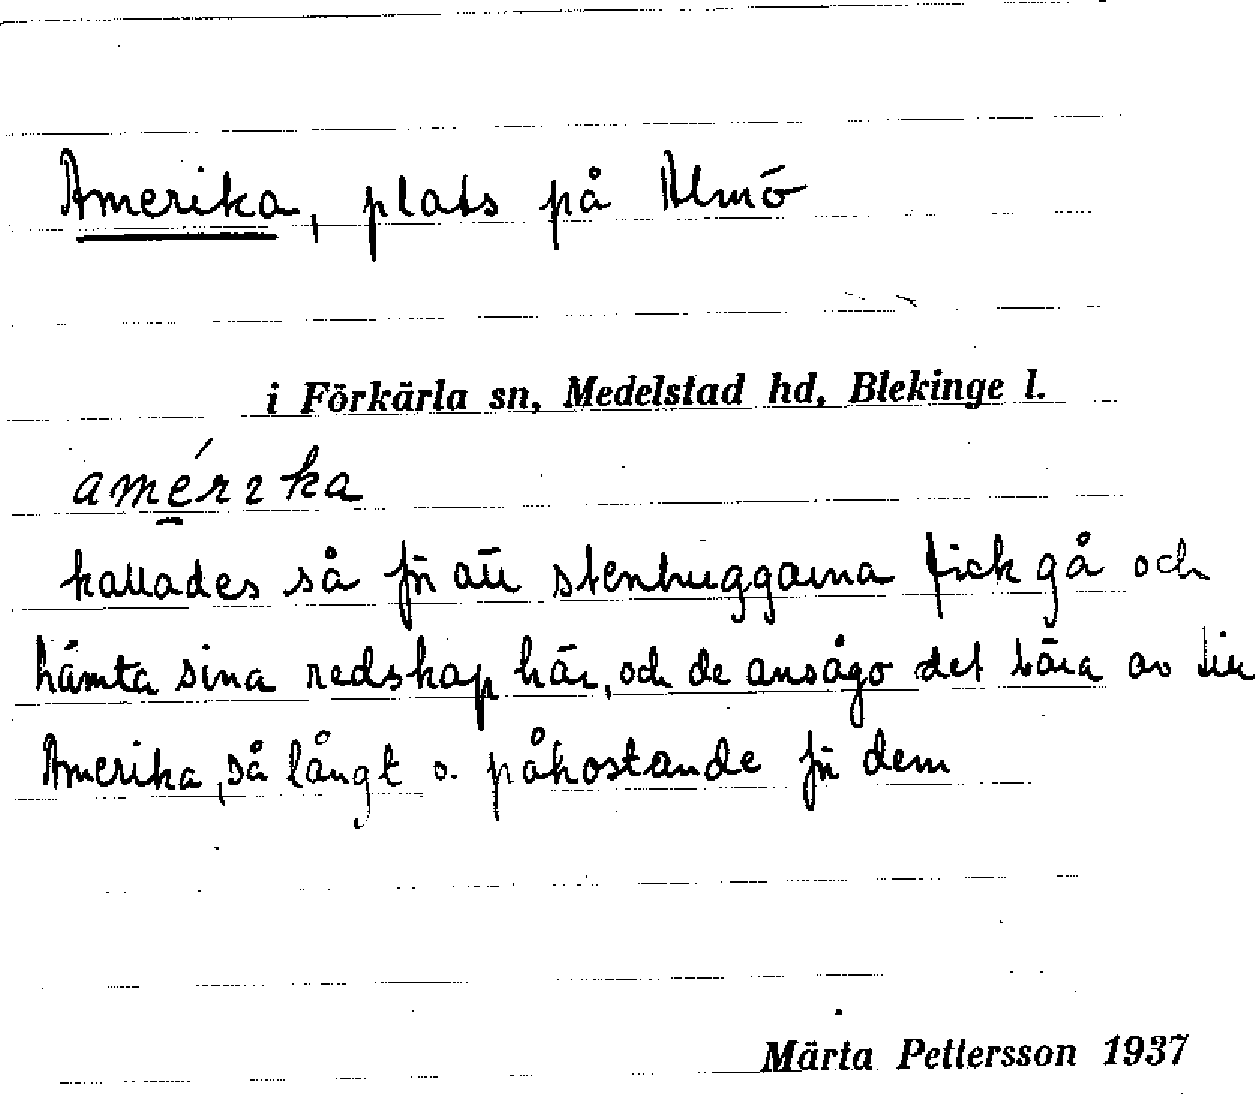 Amerika, plats på Almö
i Förkärla sn, Medelstad hd, Blekinge l.
amérika
kallades så för att stenhuggarna fick gå och
hämta sina redskap här, och de ansågo det bära av till
Amerika, så långt o. påkostande för dem
Märta Pettersson 1937